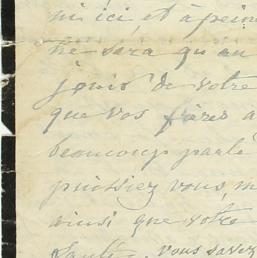 ni ici, et à pein
ne sera qu'au
jouis de votre
que vos frères a
beaucoup parlé
puissiez vous, m
ainsi que votre
santé. vous savez